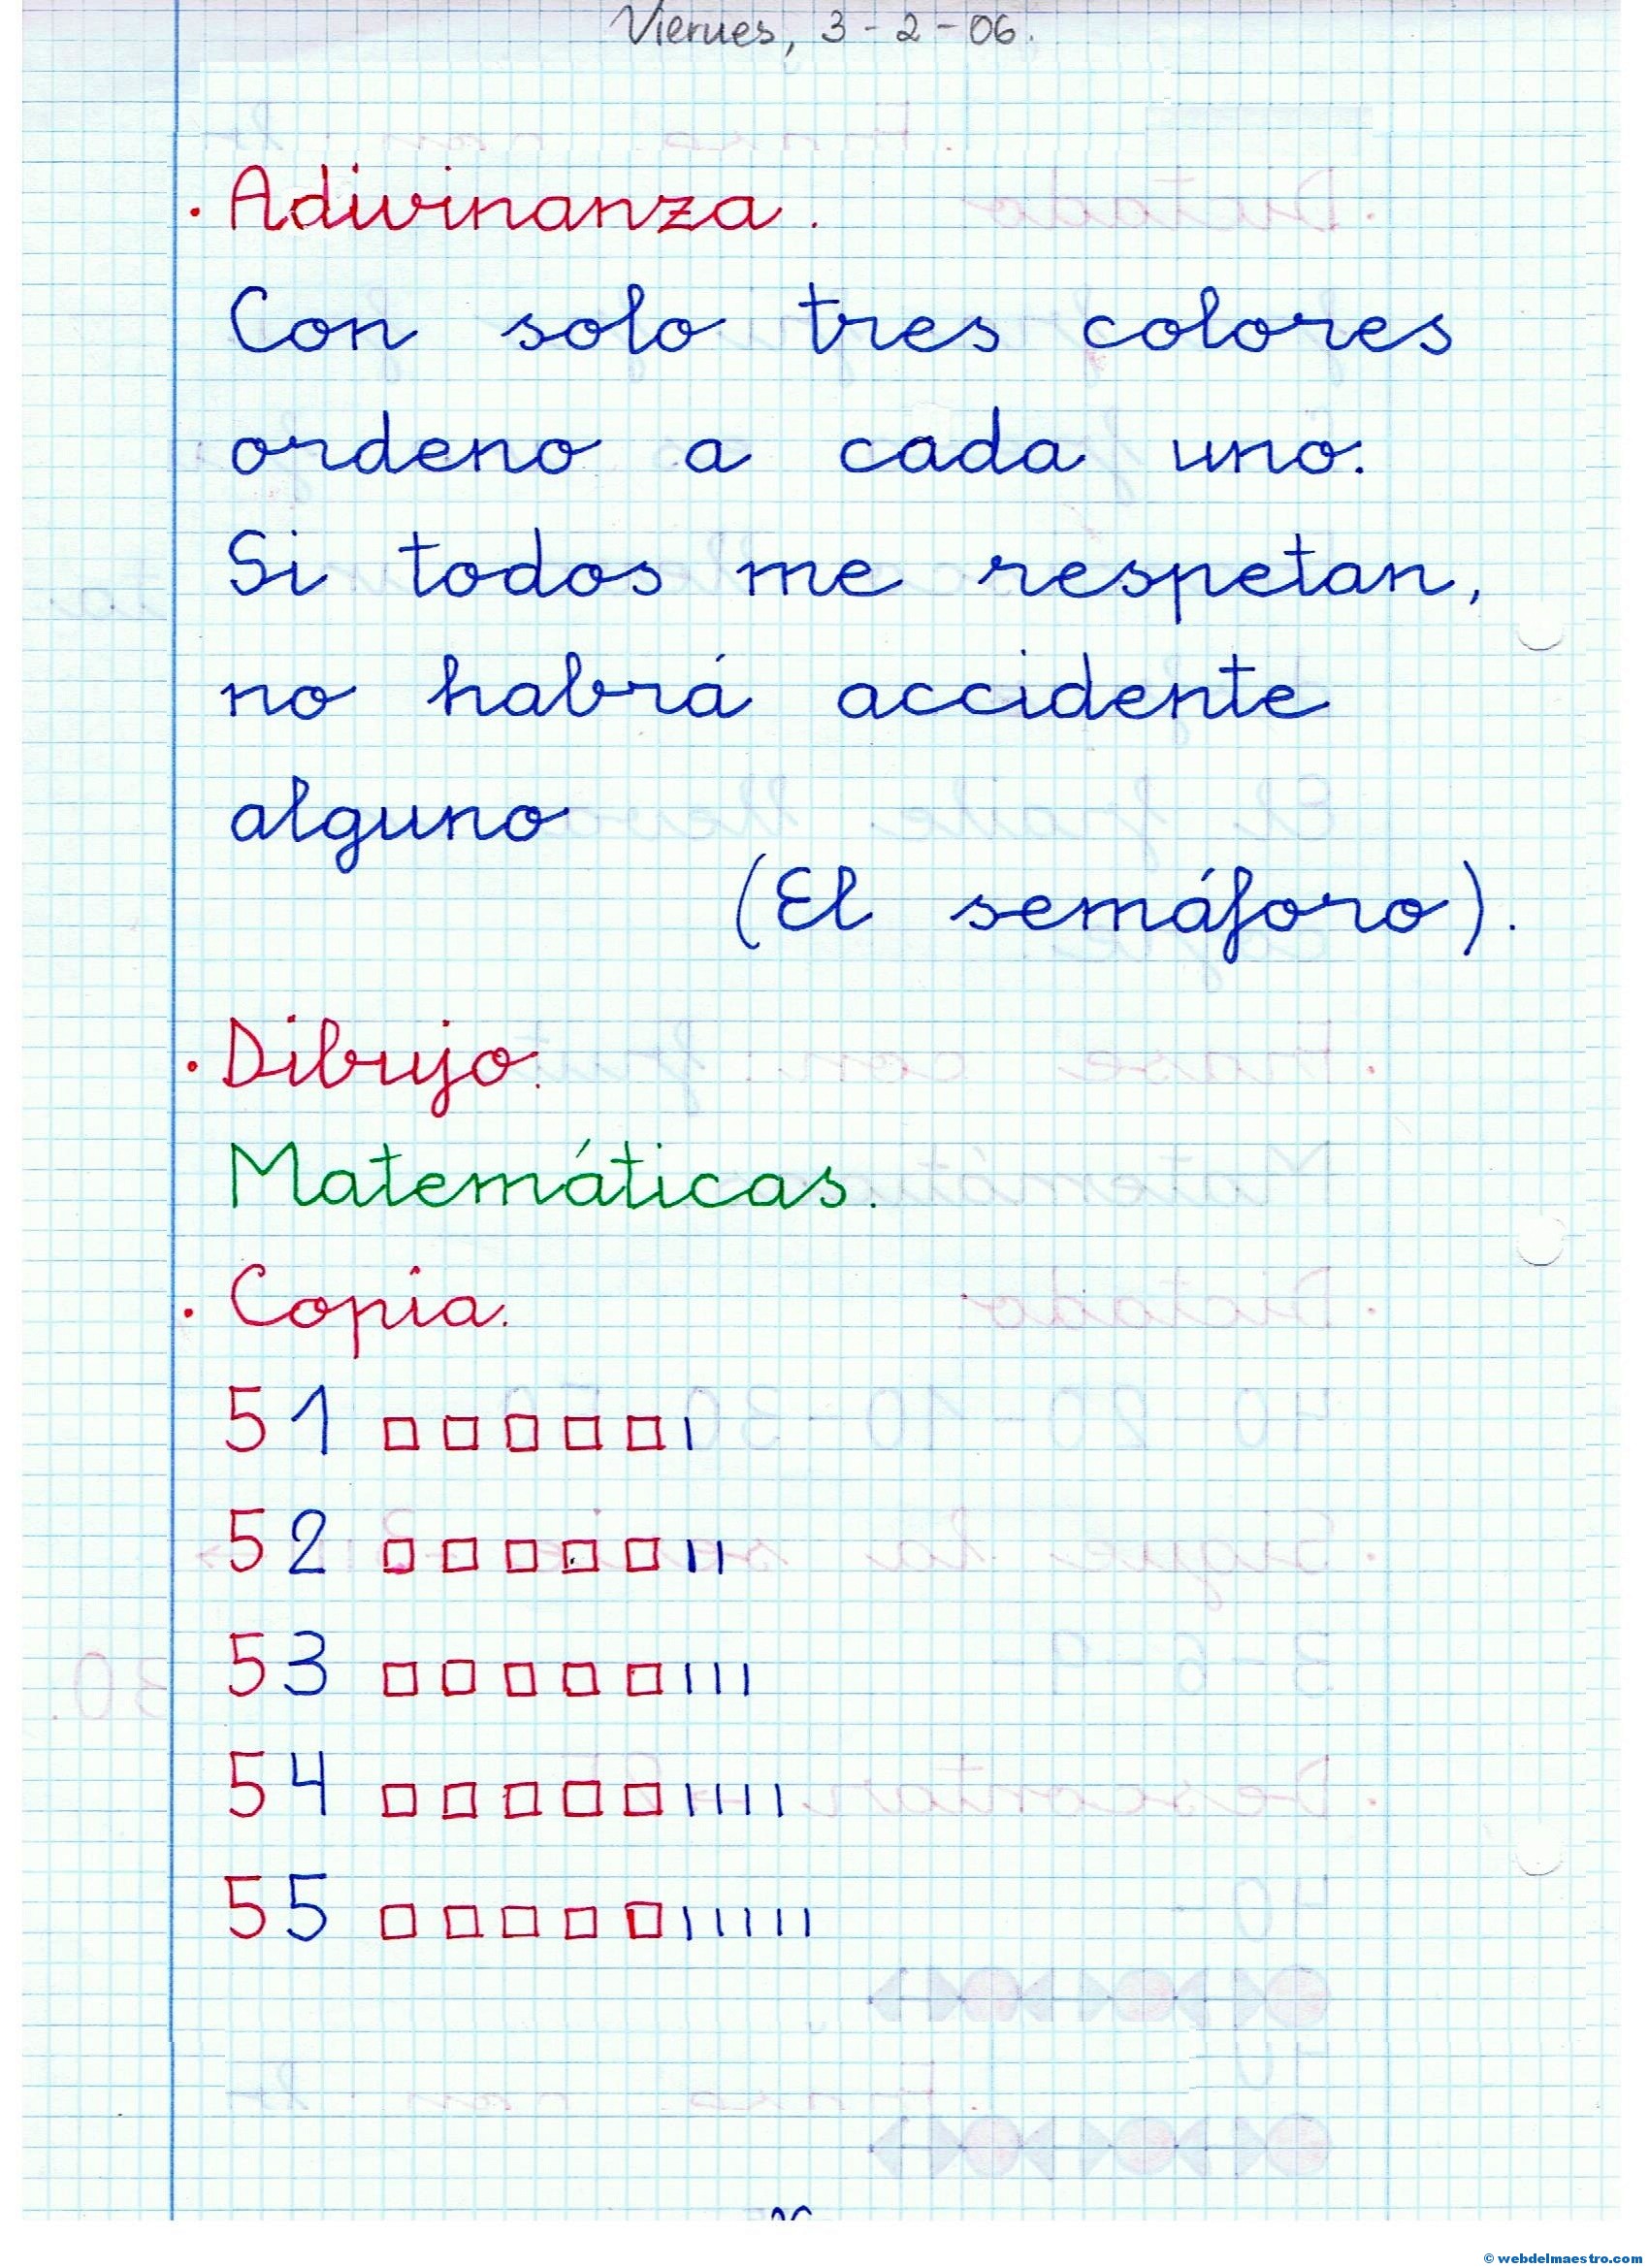 Viernes, 3-2-06.
· Adivinanza.
Con solo tres colores
ordeno a cada uno.
Si todos me respetan,
no habrá accidente
alguno
(El semáforo).
· Dibujo.
Matemáticas.
· Copia.
51
52
53
54
55
© webdelmaestro.com